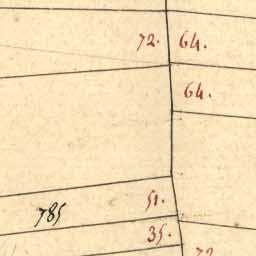 72. 64.
64.
51.
785
35.
72